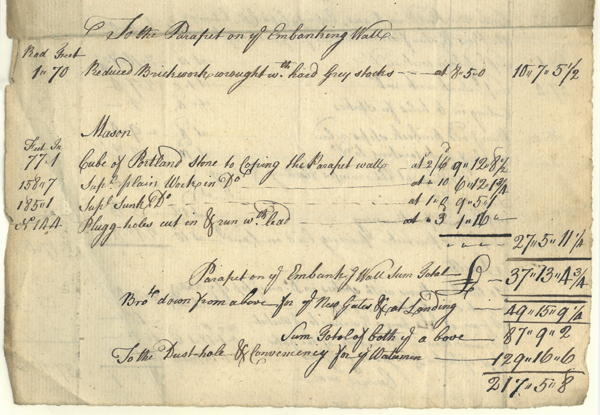 To the Parapet on ye Embanking Wall
Rod Feet
1 " 70 Reduced Brickwork wrought wth hard Grey stocks — at 8 " 5 " 0 10 " 7 " 5 1/2
Mason
Feet In
77 " 1 Cube of Portland stone to Coping the Parapet wall at 2/6 9 " 12 " 8 1/2
158 " 7 Supl plain Work in Do at " 10 6 " 12 " 1 3/4
185 " 1 Supl Sunk Do at 1 " 0 9 " 5 " 1
No 144 Plugg-holes cut in & run wth lead at " 3 1 " 16 "
27 " 5 " 11 1/4
Parapet on ye Embankg Wall Sum Total £ 37 " 13 " 4 3/4
Brot down from above for ye New Gates & at Landing — 49 " 15 " 9 1/4
Sum Total of both ye above — 87 " 9 " 2
To the Dust-hole & Conveniency for ye Watermen — 129 " 16 " 6
217 " 5 " 8